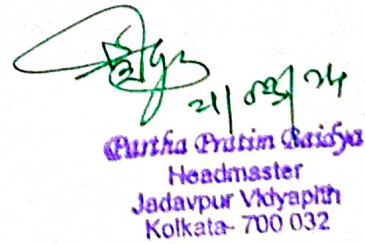 21/03/24
Partha Pratim Baidya
Headmaster
Jadavpur Vidyapith
Kolkata- 700 032